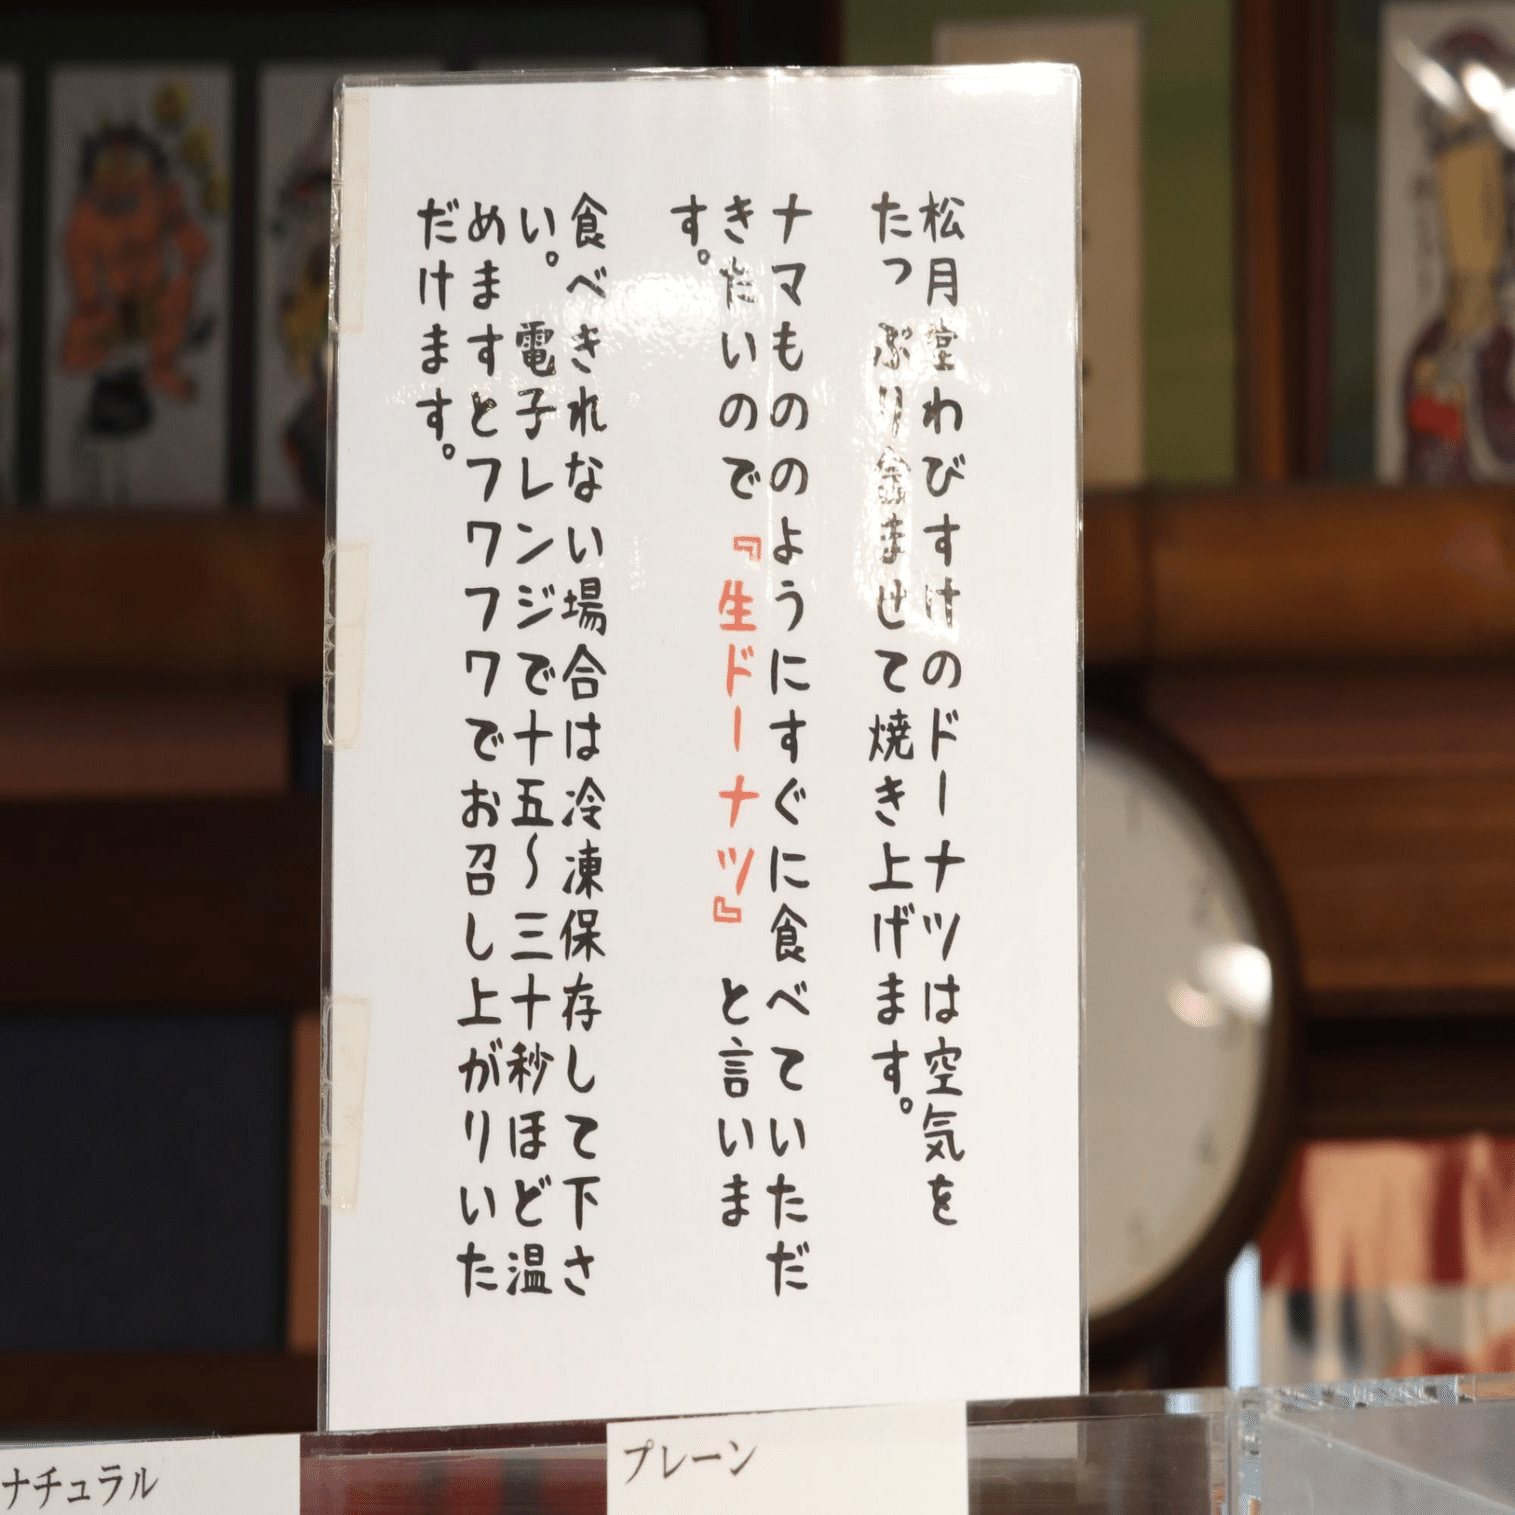 松月堂わびすけのドーナツは空気を
たっぷり含ませて焼き上げます。
ナマもののようにすぐに食べていただ
きたいので『生ドーナツ』と言いま
す。
食べきれない場合は冷凍保存して下さ
い。電子レンジで十五〜三十秒ほど温
めますとフワフワでお召し上がりいた
だけます。
ナチュラル
プレーン